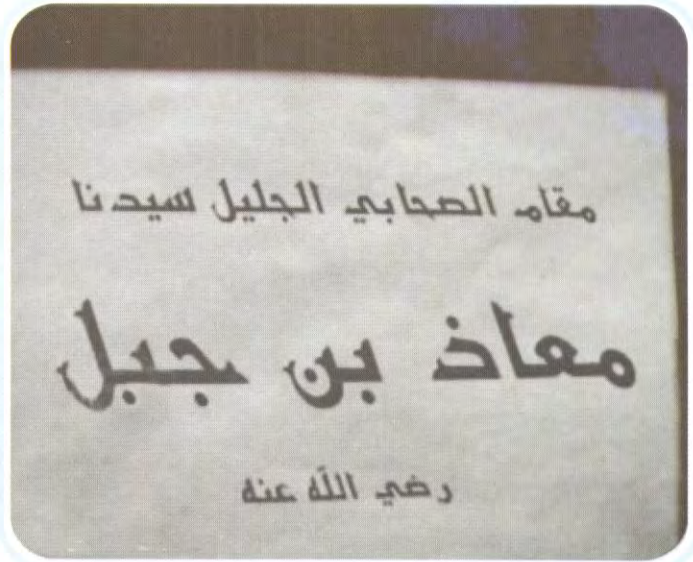 مقام الصحابي الجليل سيدنا
معاذ بن جبل
رضي الله عنه